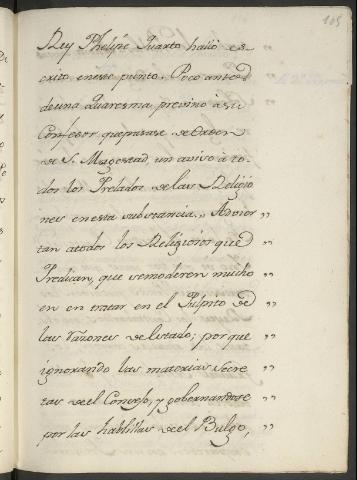 105
Rey Phelipe Quarto halló es-
crito en este punto. Poco antes
de una Quaresma, previno à su
Confesor que pasase de Orden
de S. Magestad, un aviso à to-
dos los Prelados de las Religio
nes en esta substancia. „ Advier „
tan atodos los Religiosos que „
Predican, que semoderen mucho „
en en tratar en el Pulpito de „
las razones de Estado; por que „
ignorando las materias Secre „
tas del Consejo, y gobernandose „
por las hablillas del Bulgo, „